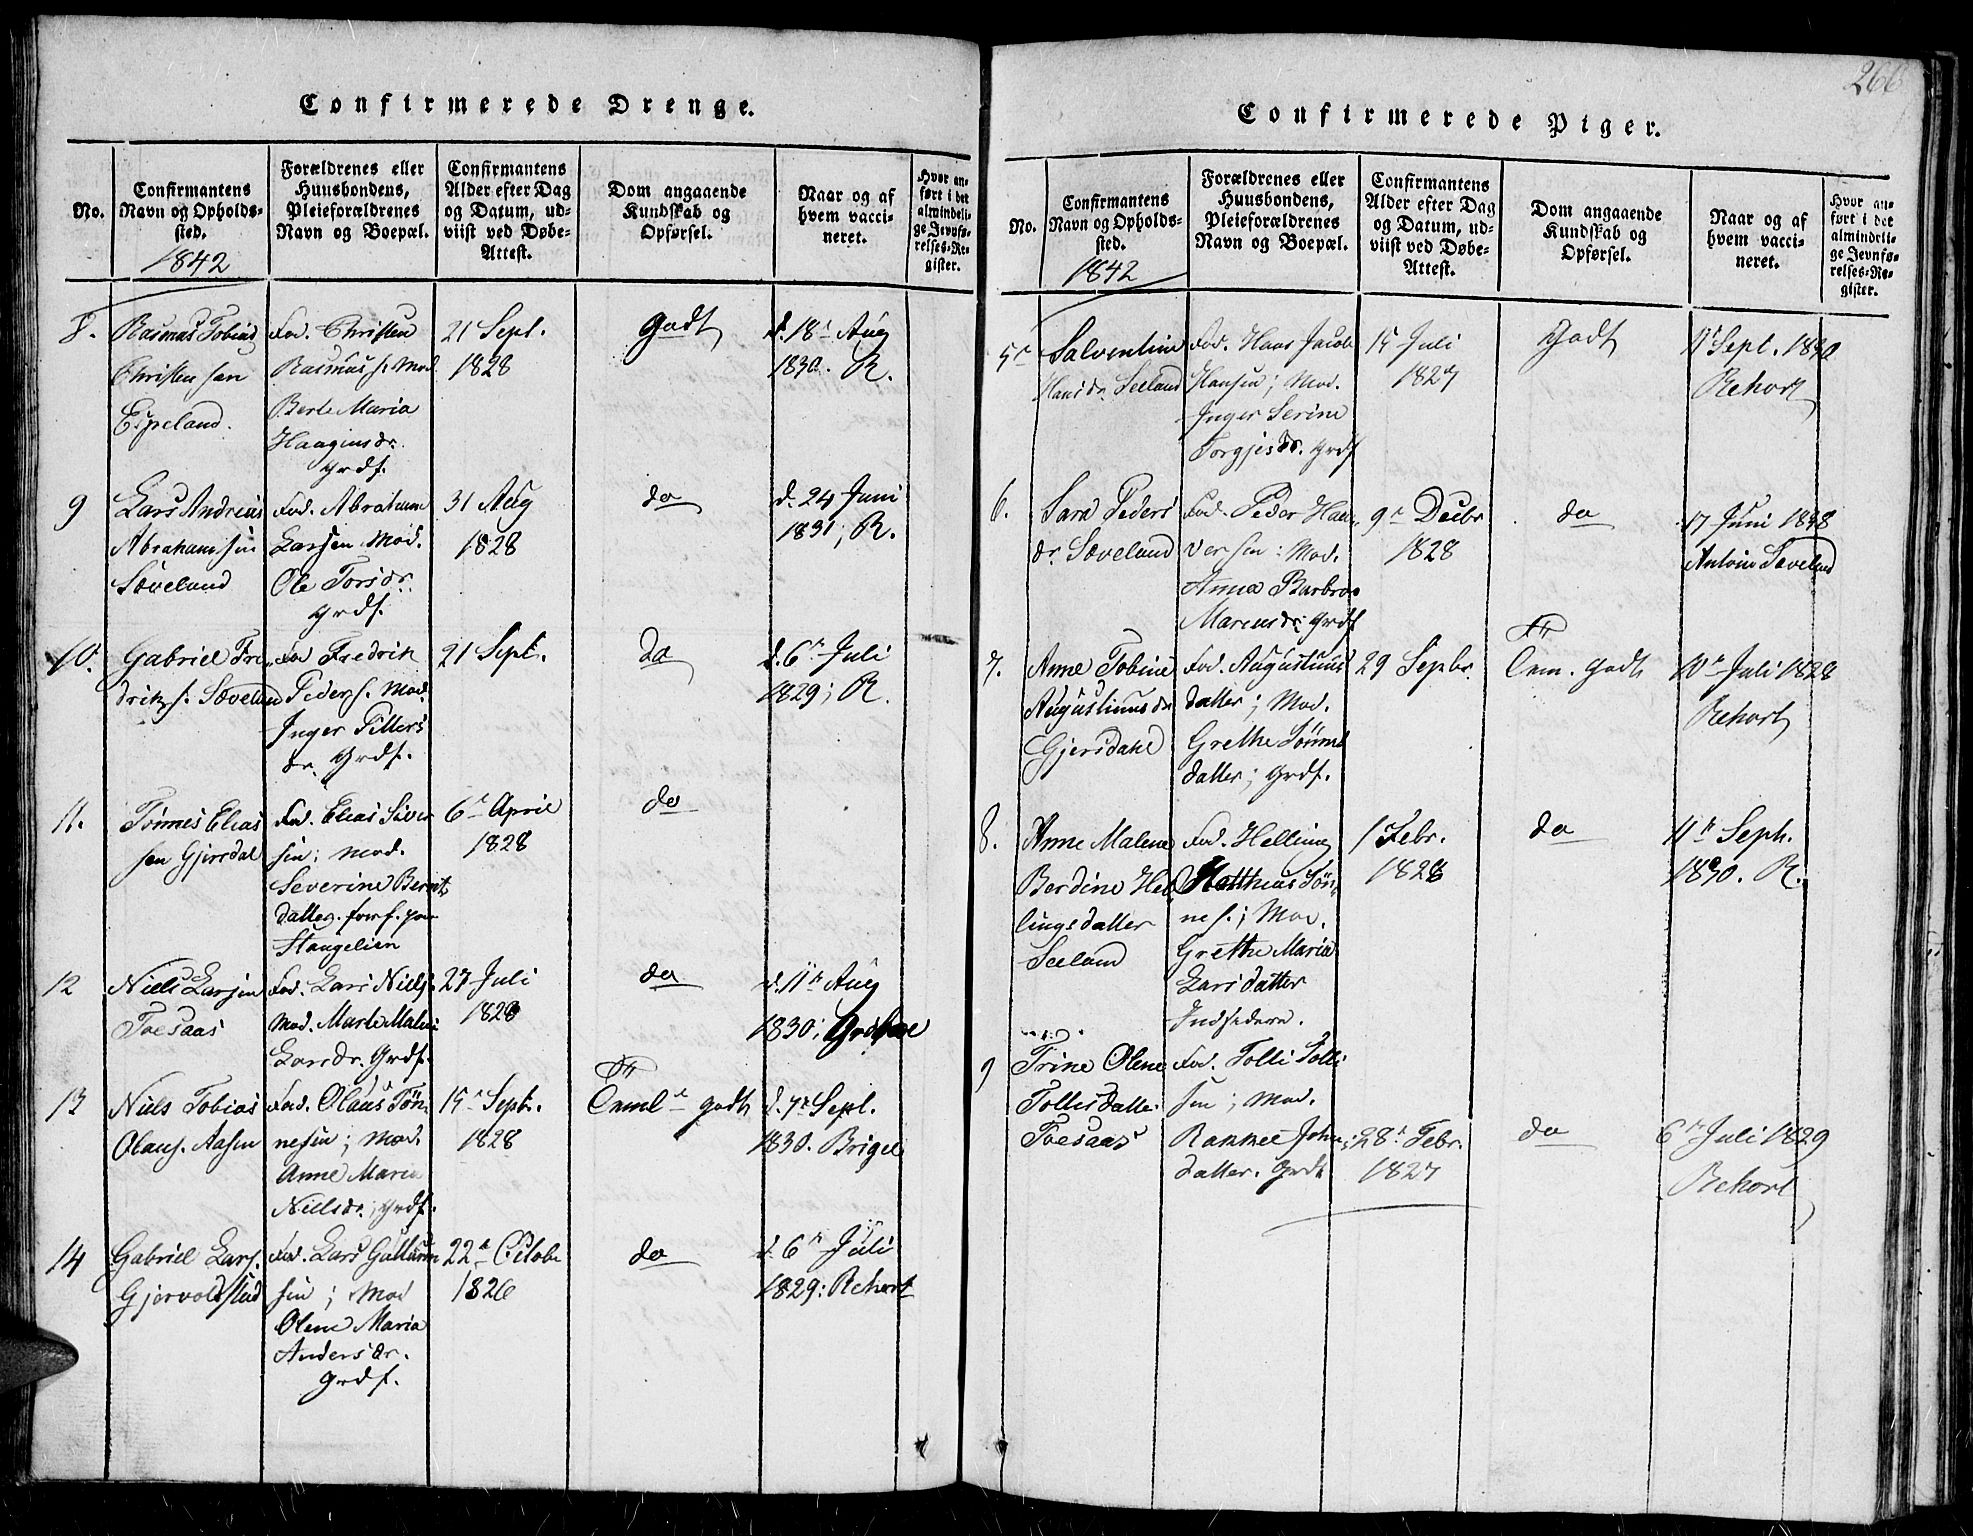 Confirmerede Drenge.
No.
Confirmantens
Navn og Opholds-
sted.
1842
Forældrenes eller
Huusbondens,
Pleieforældrenes
Navn og Boepæl.
Confirmantens
Alder efter Dag
og Datum, ud-
viist ved Døbe-
Attest.
Dom angaaende
Kundskab og
Opførsel.
Naar og af
hvem vacci-
neret.
Hvor an-
ført i det
almindeli-
ge Jevnfø-
relses-Re-
gister.
8.
Rasmus Tobias
Christensen
Espeland.
Fad. Christen
Rasmuss. Mod
Berte Maria
Haagensdr.
Grdf.
21 Sept.
1828
Godt
d. 18de Aug
1830. R.
9
Lars Andreas
Abrahamsen
Sæveland
Fad. Abraham
Larsen Mod.
Ole Torsdr.
Grdf.
31 Aug
1828
do
d. 24 Juni
1831; R.
10.
Gabriel Fre-
driks. Sæveland
Fad Fredrik
Peders. Mod.
Inger Pitters
dr. Grdf.
21 Sept.
do
d. 6te Juli
1829; R.
11.
Tönnes Elias
sen Gjersdal
Fad. Elias Siver
sen; Mod.
Severine Bernts
datter. forf. paa
Stangelien
6te April
1828
do
12
Niels Larsen
Toesaas
Fad. Lars Niels.
Mod. Marte Malene
Larsdr. Grdf.
27 Juli
1828
do
d. 11te Aug
1830;
13
Niels Tobias
Olaus. Aasen
Fad. Olaus Tön-
nesen; Mod.
Anne Maria
Nielsdr.; Grdf.
15de Sept.
1828
godt
d. 7de Sept.
1830. Brigel
14
Gabriel Lars.
Gjervoldstad
Fad. Lars Guttorm
sen; Mod
Olene Maria
Andersdr.
Grdf.
22de Octobr
1826
do
d. 6te Juli
1829: Rehort
266
Confirmerede Piger.
No.
Confirmantens
Navn og Opholds-
sted.
1842
Forældrenes eller
Huusbondens,
Pleieforældrenes
Navn og Boepæl.
Confirmantens
Alder efter Dag
og Datum, ud-
viist ved Døbe-
Attest.
Dom angaaende
Kundskab og
Opførsel.
Naar og af
hvem vacci-
neret.
Hvor an-
ført i det
almindeli-
ge Jevnfø-
relses-Re-
gister.
5
Salventine
Hansdr. Seeland
Fad. Hans Jacob
Hansen; Mod.
Inger Serine
Torgjesdr. Grdf
15 Juli
1827
Godt
Sept. 1830
Rehort
6.
Sara Peders
dr. Sæveland
Fad. Peder Hal-
versen: Mod.
Anna Barbro
Mareusdr: Grdf
9de Decbr
1828
do
17 Juni 1838
Antoin Sæveland
7.
Anne Tobine
Augustinusdr
Gjersdahl
Fad. Augustinus
datter; Mod.
Grethe Tönnes
datter; Grdf.
29 Sepbr
godt
10de Juli 1828
Rehort
8.
Anne Malene
Berdine Hel-
lingsdatter
Seeland
Fad. Helling
Matthias Tön-
nes.; Mod.
Grethe Maria
Larsdatter
Indsidere.
1 Febr.
1828
do
11te Sept.
1830. R.
9
Trine Olene
Tollisdatter
Toesaas
Fad. Tolli Tolli
sen; Mod.
Rannee John-
datter. Grdf
28de Febr.
1827
do
6te Juli 1829
Rehort